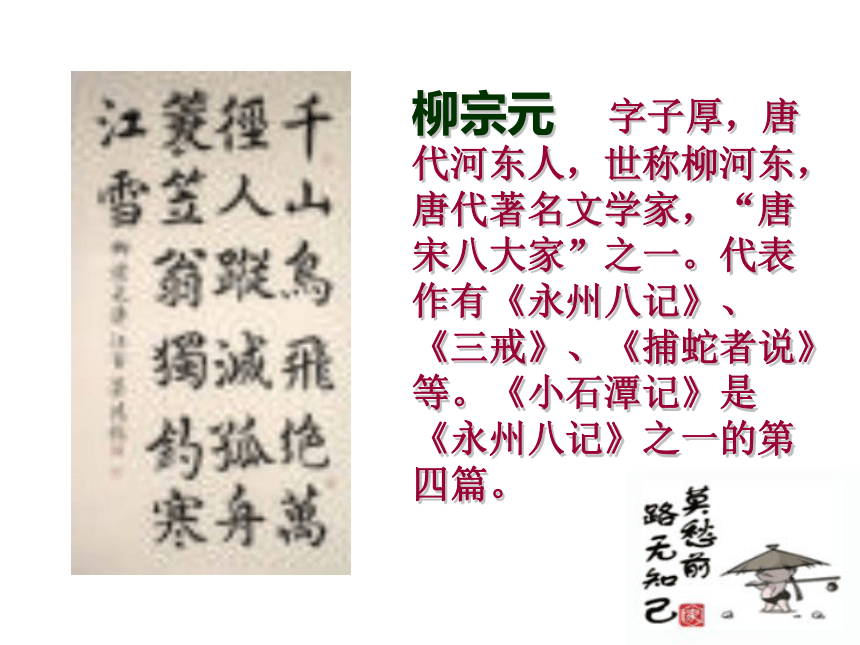 千山鳥飛絶萬
徑人蹤滅孤舟
簑笠翁獨釣寒
江雪
柳宗元 字子厚，唐
代河东人，世称柳河东，
唐代著名文学家，“唐
宋八大家”之一。代表
作有《永州八记》、
《三戒》、《捕蛇者说》
等。《小石潭记》是
《永州八记》之一的第
四篇。
莫愁前
路无知己